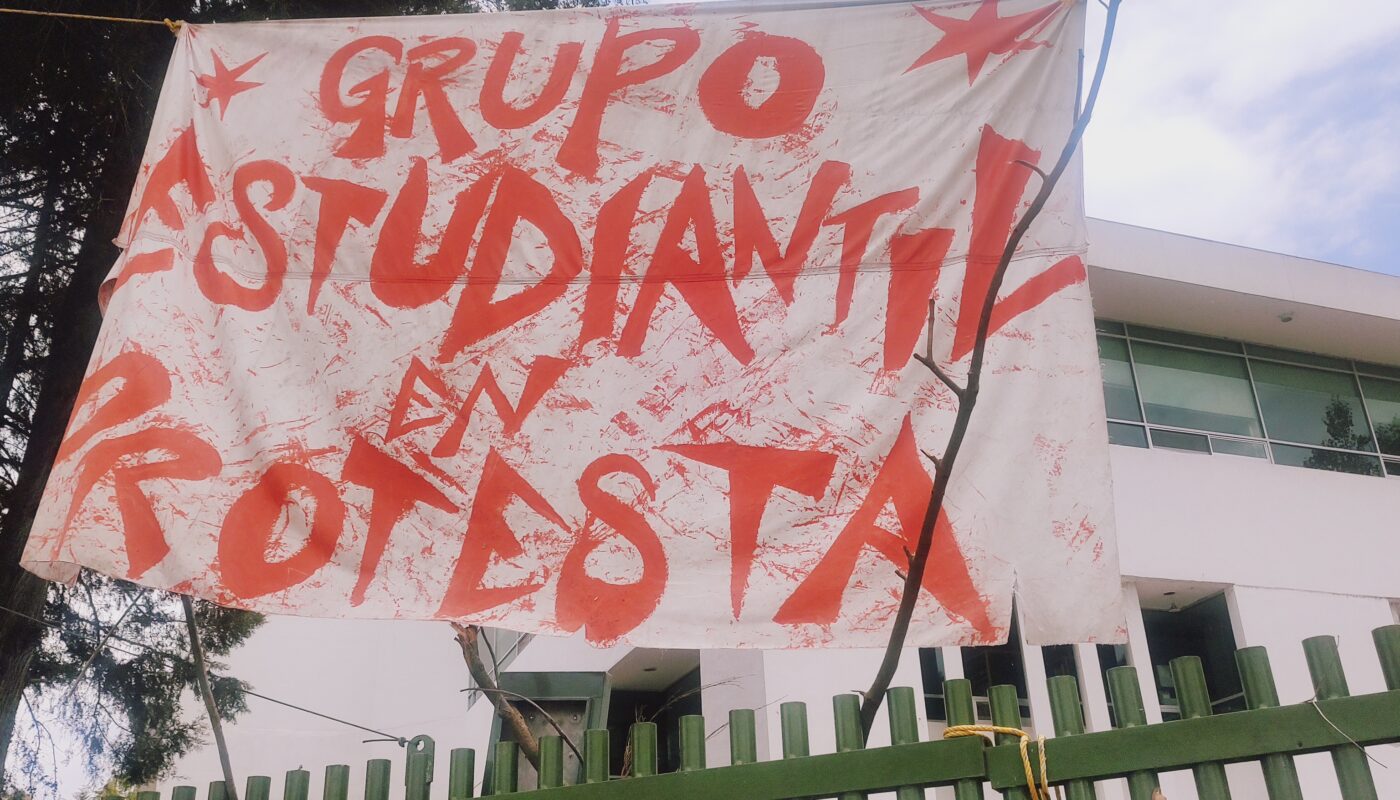 GRUPO
ESTUDIANTIL
EN
PROTESTA